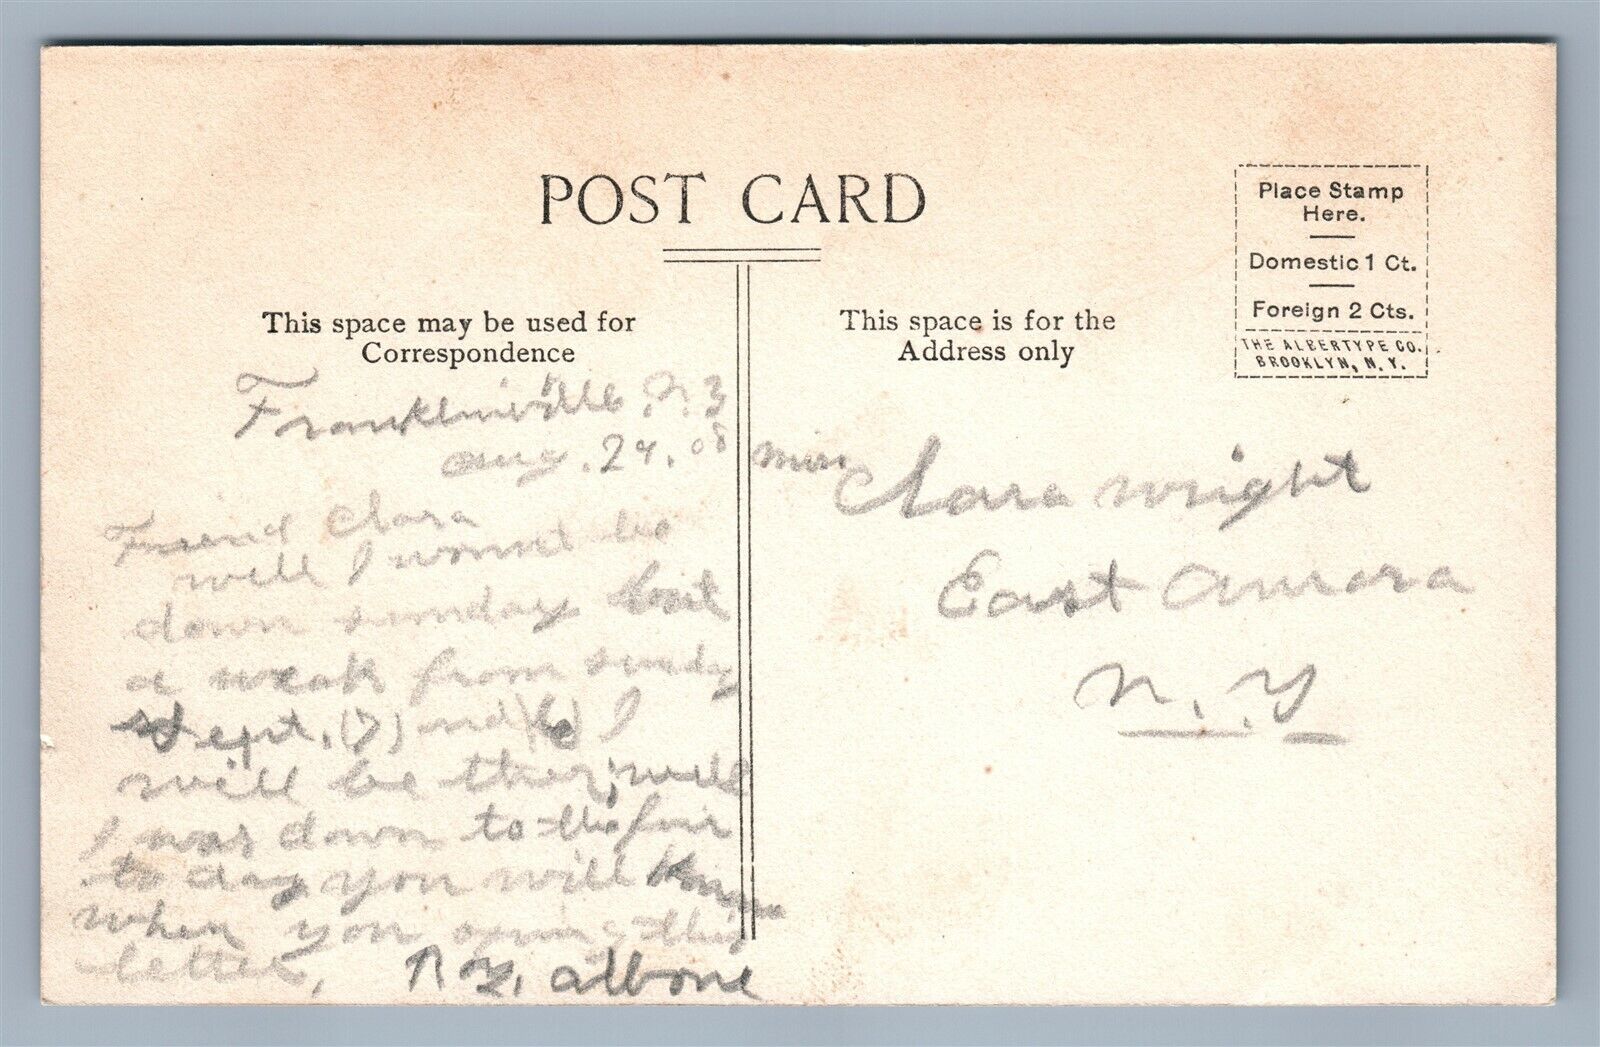 POST CARD
Place Stamp
Here.
Domestic 1 Ct.
Foreign 2 Cts.
THE ALBERTYPE CO.
BROOKLYN, N.Y.
This space may be used for
Correspondence
This space is for the
Address only
Franklinville
aug. 24. 08
Friend Clara
well I wount be
down sunday but
a weak from sunday
stept. (7)
will be ther, well
I was down to the fair
to day you will know
when you this
letter, Roy. albone
miss
Clara wright
East aurora
N. Y